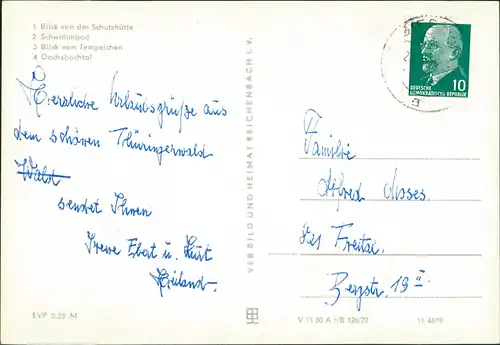 1 Blick von der Schutzhütte
2 Schwimmbad
3 Blick vom Tempelchen
4 Dachsbachtal
Herzliche Urlaubsgrüße aus
dem schönen Thüringerwald
Wald
sendet Ihnen
Irene Ebert u. Kurt
Heiland.
EVP 0,20 M
VEB BILD UND HEIMAT REICHENBACH i. V.
DEUTSCHE
DEMOKRATISCHE REPUBLIK
10
Familie
Alfred Moses
Freital
Bergstr. 19 I
V 11 30 A 1/B 126/72 11 4879